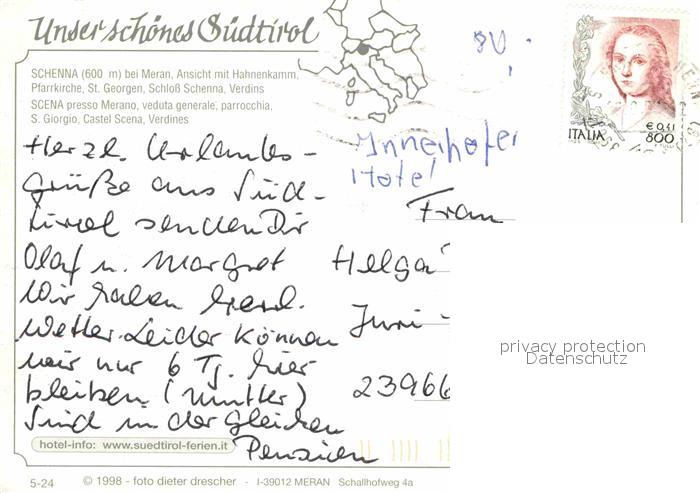 Unser schönes Südtirol
SCHENNA (600 m) bei Meran, Ansicht mit Hahnenkamm,
Pfarrkirche, St. Georgen, Schloß Schenna, Verdins
SCENA presso Merano, veduta generale, parrocchia,
S. Giorgio, Castel Scena, Verdines
ITALIA
€ 0,41
800
Innerhofer
Hotel
Herzl. Urlaubs-
grüße aus Süd-
tirol senden Dir
Olaf u. Margret
Wir haben herrl.
Wetter. Leider können
wir nur 6 Tg. hier
bleiben (Mutter)
Sind in der gleichen
Pension
Frau
Helga
23966
privacy protection
Datenschutz
hotel-info: www.suedtirol-ferien.it
5-24 © 1998 - foto dieter drescher - I-39012 MERAN Schallhofweg 4a